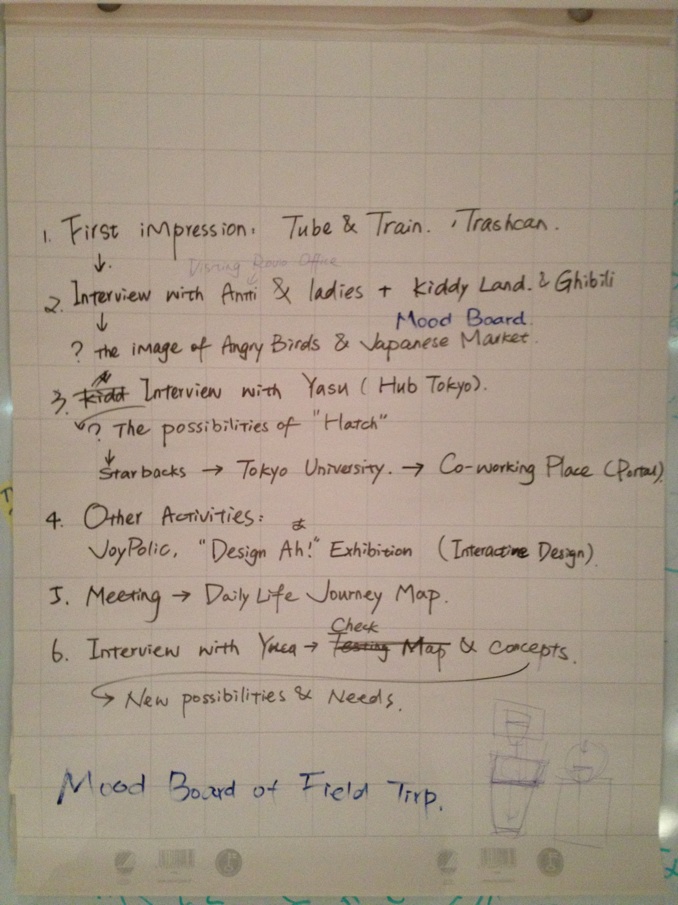 1. First impression: Tube & Train. , Trashcan.
Visiting Rovio Office
2. Interview with Antti & ladies + Kiddy Land. & Ghibili
Mood Board.
? The image of Angry Birds & Japanese Market.
3. Kidd Interview with Yasu (Hub Tokyo).
? The possibilities of "Hatch"
Starbacks → Tokyo University. → Co-working Place (Portal).
4. Other Activities:
JoyPolic, "Design Ah!" Exhibition (Interactive Design)
5. Meeting → Daily Life Journey Map.
Check
6. Interview with → Testing Map & Concepts.
→ New possibilities & Needs.
Mood Board of Field Tirp.